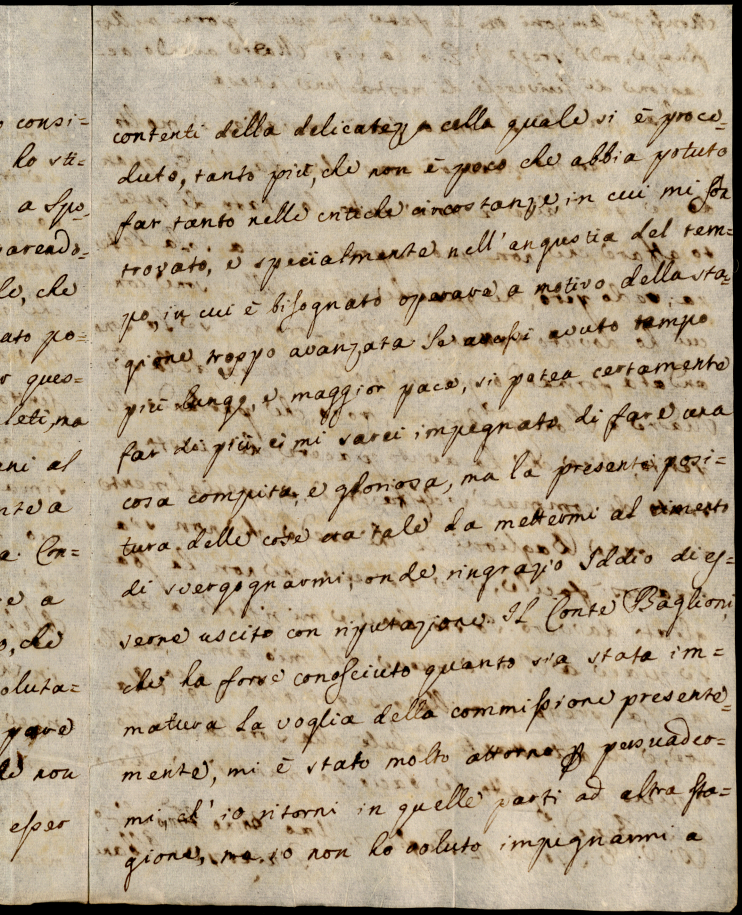 o consi=
ho sti=
a Spo=
parendo=
le, che
ato po=
r ques=
leti, ma
eni al
nte a
a. Con=
re a
o, che
oluta=
pare
le non
esser
contenti della delicatezza colla quale si è proce=
duto, tanto più, che non è poco che abbia potuto
far tanto nelle critiche circostanze, in cui mi son
trovato, e specialmente nell'angustia del tem=
po, in cui è bisognato operare a motivo della sta=
gione troppo avanzata. Se avessi avuto tempo
più lungo, e maggior pace, si potea certamente
far di più, ei mi sarei impegnato di fare una
cosa compita, e gloriosa, ma la presente posi=
tura delle cose era tale da mettermi al cimento
di svergognarmi, onde ringrazio Iddio di es=
serne uscito con riputazione. Il Conte Baglioni,
che ha forse conosciuto quanto sia stata im=
matura la voglia della commissione presente=
mente, mi è stato molto attorno p persuader=
mi, ch' io ritorni in quelle parti ad altra sta=
gione, ma io non ho voluto impegnarmi a